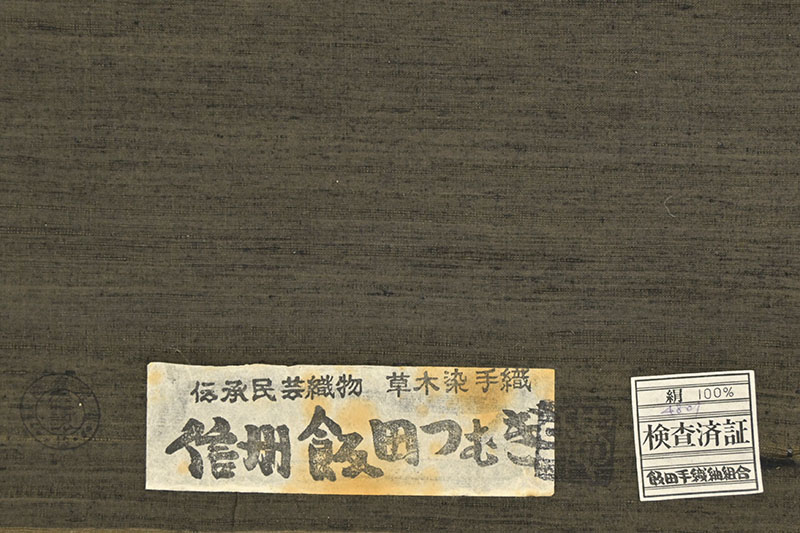 伝承民芸織物 草木染手織
信州飯田つむぎ
絹 100%
検査済証
飯田手織紬組合